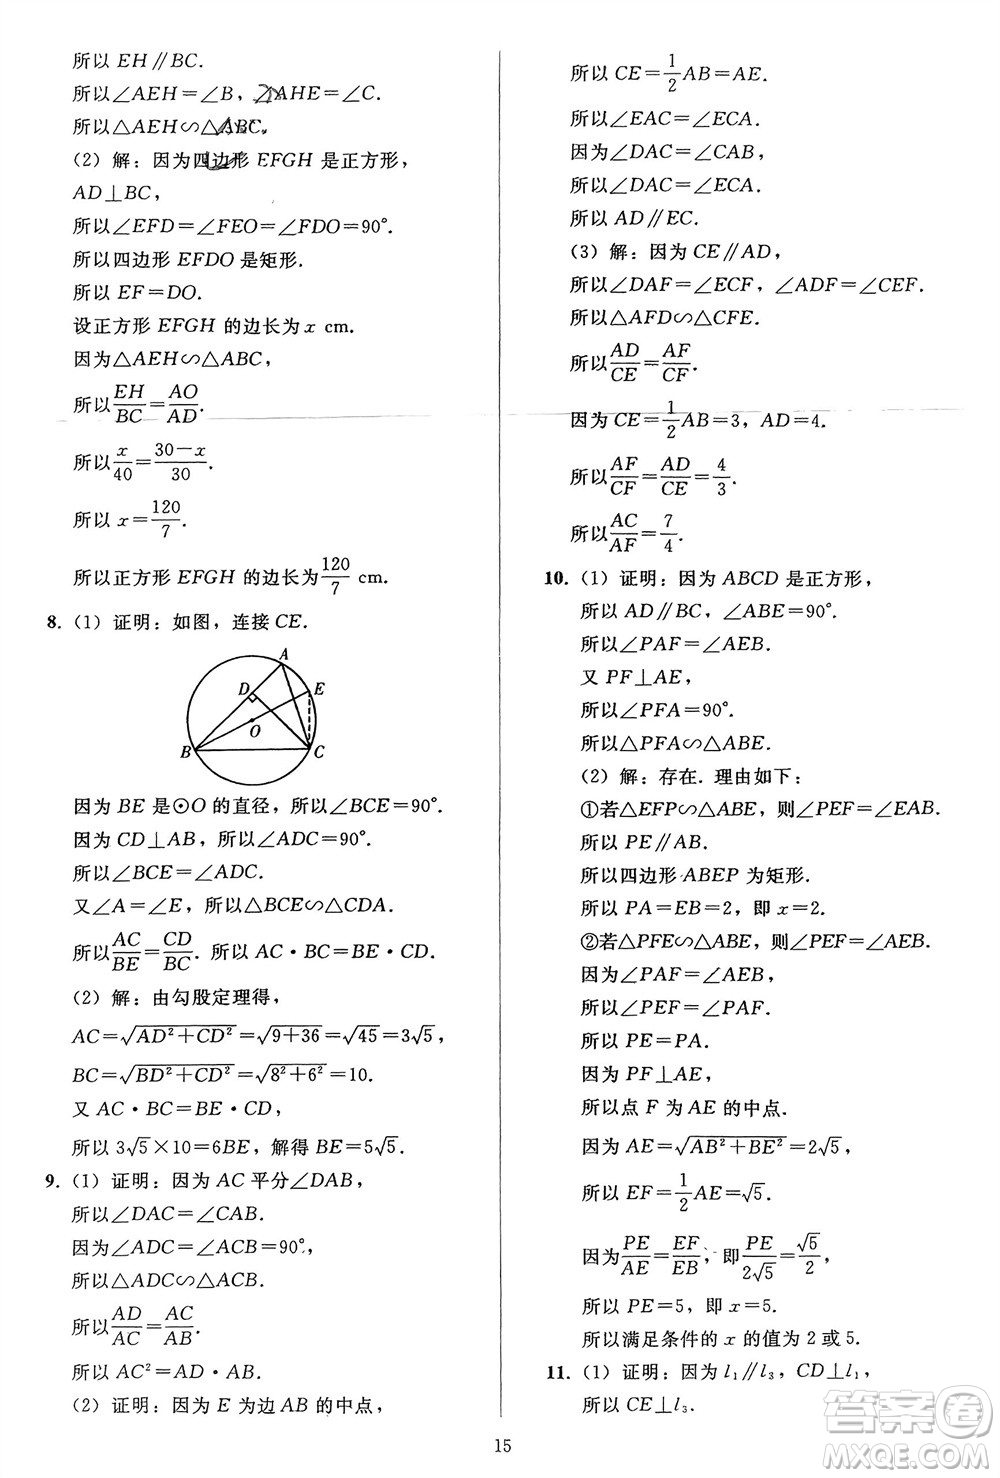 所以 EH∥BC.
所以∠AEH=∠B，∠AHE=∠C.
所以△AEH∽△ABC.
(2) 解：因为四边形 EFGH 是正方形，
AD⊥BC，
所以∠EFD=∠FEO=∠FDO=90°.
所以四边形 EFDO 是矩形.
所以 EF=DO.
设正方形 EFGH 的边长为 x cm.
因为△AEH∽△ABC，
所以EH/BC=AO/AD.
所以x/40=(30-x)/30.
所以 x=120/7.
所以正方形 EFGH 的边长为120/7 cm.
8. (1) 证明：如图，连接 CE.
A
D
E
O
B
C
因为 BE 是⊙O 的直径，所以∠BCE=90°.
因为 CD⊥AB，所以∠ADC=90°.
所以∠BCE=∠ADC.
又∠A=∠E，所以△BCE∽△CDA.
所以AC/BE=CD/BC. 所以 AC·BC=BE·CD.
(2) 解：由勾股定理得，
AC=√(AD²+CD²)=√(9+36)=√45=3√5，
BC=√(BD²+CD²)=√(8²+6²)=10.
又 AC·BC=BE·CD，
所以 3√5×10=6BE，解得 BE=5√5.
9. (1) 证明：因为 AC 平分∠DAB，
所以∠DAC=∠CAB.
因为∠ADC=∠ACB=90°，
所以△ADC∽△ACB.
所以AD/AC=AC/AB.
所以 AC²=AD·AB.
(2) 证明：因为 E 为边 AB 的中点，
所以 CE=1/2AB=AE.
所以∠EAC=∠ECA.
因为∠DAC=∠CAB，
所以∠DAC=∠ECA.
所以 AD∥EC.
(3) 解：因为 CE∥AD，
所以∠DAF=∠ECF，∠ADF=∠CEF.
所以△AFD∽△CFE.
所以AD/CE=AF/CF.
因为 CE=1/2AB=3，AD=4.
所以AF/CF=AD/CE=4/3.
所以AC/AF=7/4.
10. (1) 证明：因为 ABCD 是正方形，
所以 AD∥BC，∠ABE=90°.
所以∠PAF=∠AEB.
又 PF⊥AE，
所以∠PFA=90°.
所以△PFA∽△ABE.
(2) 解：存在. 理由如下：
①若△EFP∽△ABE，则∠PEF=∠EAB.
所以 PE∥AB.
所以四边形 ABEP 为矩形.
所以 PA=EB=2，即 x=2.
②若△PFE∽△ABE，则∠PEF=∠AEB.
因为∠PAF=∠AEB，
所以∠PEF=∠PAF.
所以 PE=PA.
因为 PF⊥AE，
所以点 F 为 AE 的中点.
因为 AE=√(AB²+BE²)=2√5，
所以 EF=1/2AE=√5.
因为PE/AE=EF/EB，即PE/2√5=√5/2，
所以 PE=5，即 x=5.
所以满足条件的 x 的值为 2 或 5.
11. (1) 证明：因为 l₁∥l₃，CD⊥l₁，
所以 CE⊥l₃.
15
答案圈
MXQE.COM